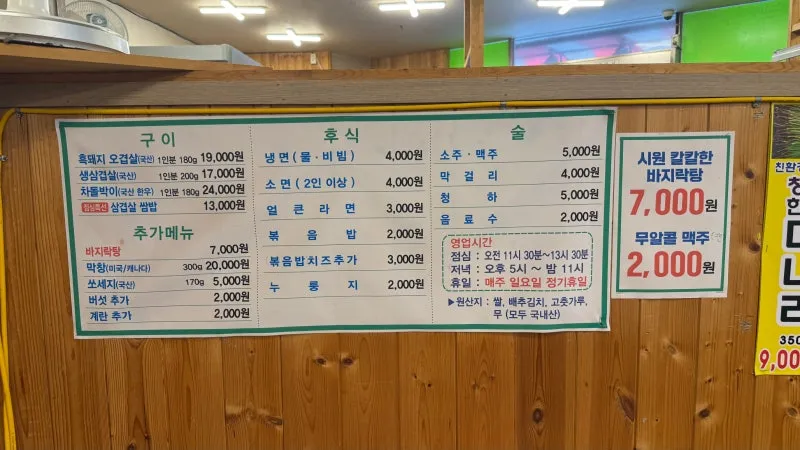 구이
흑돼지 오겹살(국산) 1인분 180g 19,000원
생삼겹살(국산) 1인분 200g 17,000원
차돌박이(국산 한우) 1인분 180g 24,000원
점심특선 삼겹살 쌈밥 13,000원
추가메뉴
바지락탕 7,000원
막창(미국/캐나다) 300g 20,000원
쏘세지(국산) 170g 5,000원
버섯 추가 2,000원
계란 추가 2,000원
후식
냉면(물·비빔) 4,000원
소면(2인 이상) 4,000원
얼큰라면 3,000원
볶음밥 2,000원
볶음밥치즈추가 3,000원
누룽지 2,000원
술
소주·맥주 5,000원
막걸리 4,000원
청하 5,000원
음료수 2,000원
영업시간
점심 : 오전 11시 30분~13시 30분
저녁 : 오후 5시 ~ 밤 11시
휴일 : 매주 일요일 정기휴일
▶원산지 : 쌀, 배추김치, 고춧가루,
무 (모두 국내산)
시원 칼칼한
바지락탕
7,000원
무알콜 맥주
2,000원
친환경
350
9,00